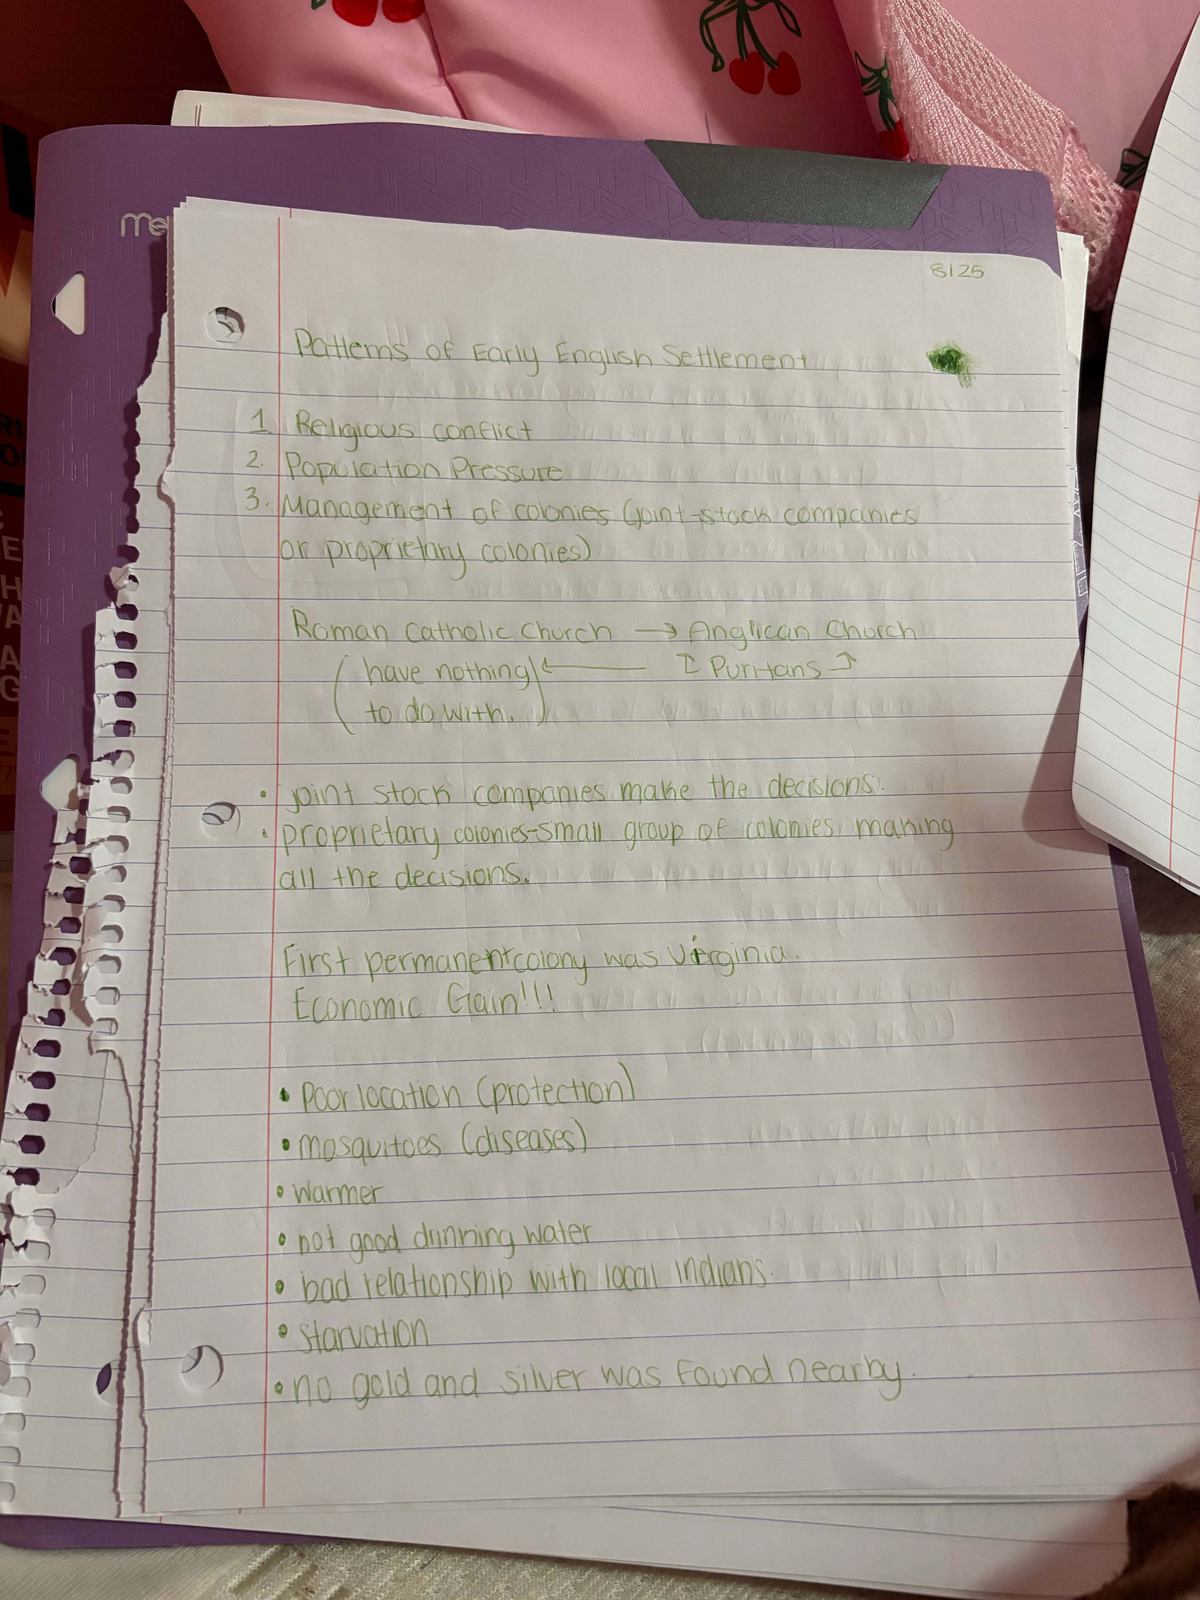 me
8/25
Patterns of Early English Settlement
1. Religious conflict
2. Population Pressure
3. Management of colonies (joint-stock companies
or proprietary colonies)
Roman Catholic Church → Anglican Church
(have nothing) ← Puritans
to do with.
• joint stock companies make the decisions.
• proprietary colonies-small group of colonies making
all the decisions.
First permanent colony was Virginia.
Economic Gain!!!
• Poor location (protection)
• mosquitoes (diseases)
• warmer
• not good drinking water
• bad relationship with local Indians.
• starvation
• no gold and silver was found nearby.